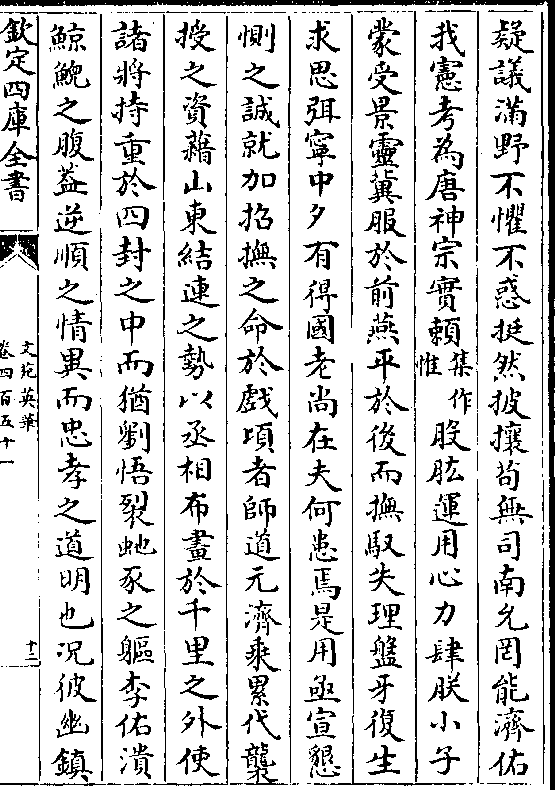 疑議滿野不懼不惑挺然披攘茍無司南允罔能濟佑
我憲考為唐神宗實頼集作惟股肱運用心力肆朕小子
蒙受景靈冀服於前燕平於後而撫馭失理盤牙復生
求思弭寧中夕有得國老尚在夫何患焉是用亟宣懇
惻之誠就加招撫之命於戲項者師道元濟乘累代襲
授之資藉山東結連之勢以丞相布畫於千里之外使
諸將持重於四封之中而猶劉悟裂虵豕之軀李佑潰
鯨鯢之腹葢逆順之情異而忠孝之道明也况彼幽鎮
欽定四庫全書
文苑英華
卷四百五十一
十二